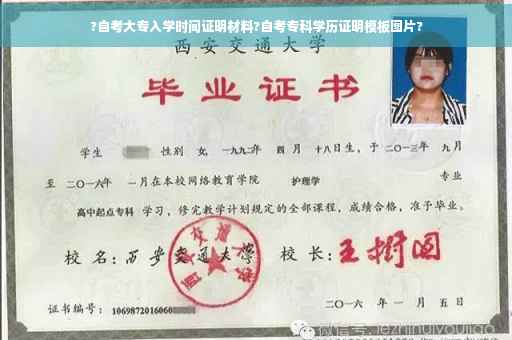 ?自考大专入学时间证明材料?自考专科学历证明模板图片?
西安交通大学
毕业证书
学生 性别 女,一九九二年 四月 十八日生,于二〇一三年 九月
至 二〇一六年 一月在本校网络教育学院 护理学 专业
高中起点专科 学习,修完教学计划规定的全部课程,成绩合格,准予毕业。
校 名:西安交通大学 校 长:王树国
西安交通大学
证书编号:1069872016060
二〇一六年 一月 五日
微信号:jiezhinuiyoujiao